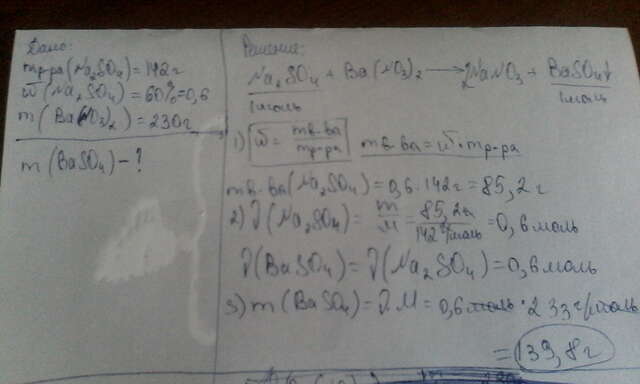 Дано:
mр-ра(Na₂SO₄)=142г
ω(Na₂SO₄)=60%=0,6
m(Ba(NO₃)₂)=230г
m(BaSO₄)-?
Решение:
Na₂SO₄ + Ba(NO₃)₂ → 2NaNO₃ + BaSO₄↓
1моль 1моль
1) ω = mв-ва/mр-ра mв-ва=ω·mр-ра
mв-ва(Na₂SO₄)=0,6·142г=85,2г
2) ν(Na₂SO₄)=m/M=85,2г/142г/моль=0,6моль
ν(BaSO₄)=ν(Na₂SO₄)=0,6моль
3) m(BaSO₄)=ν·M=0,6моль·233г/моль
=139,8г